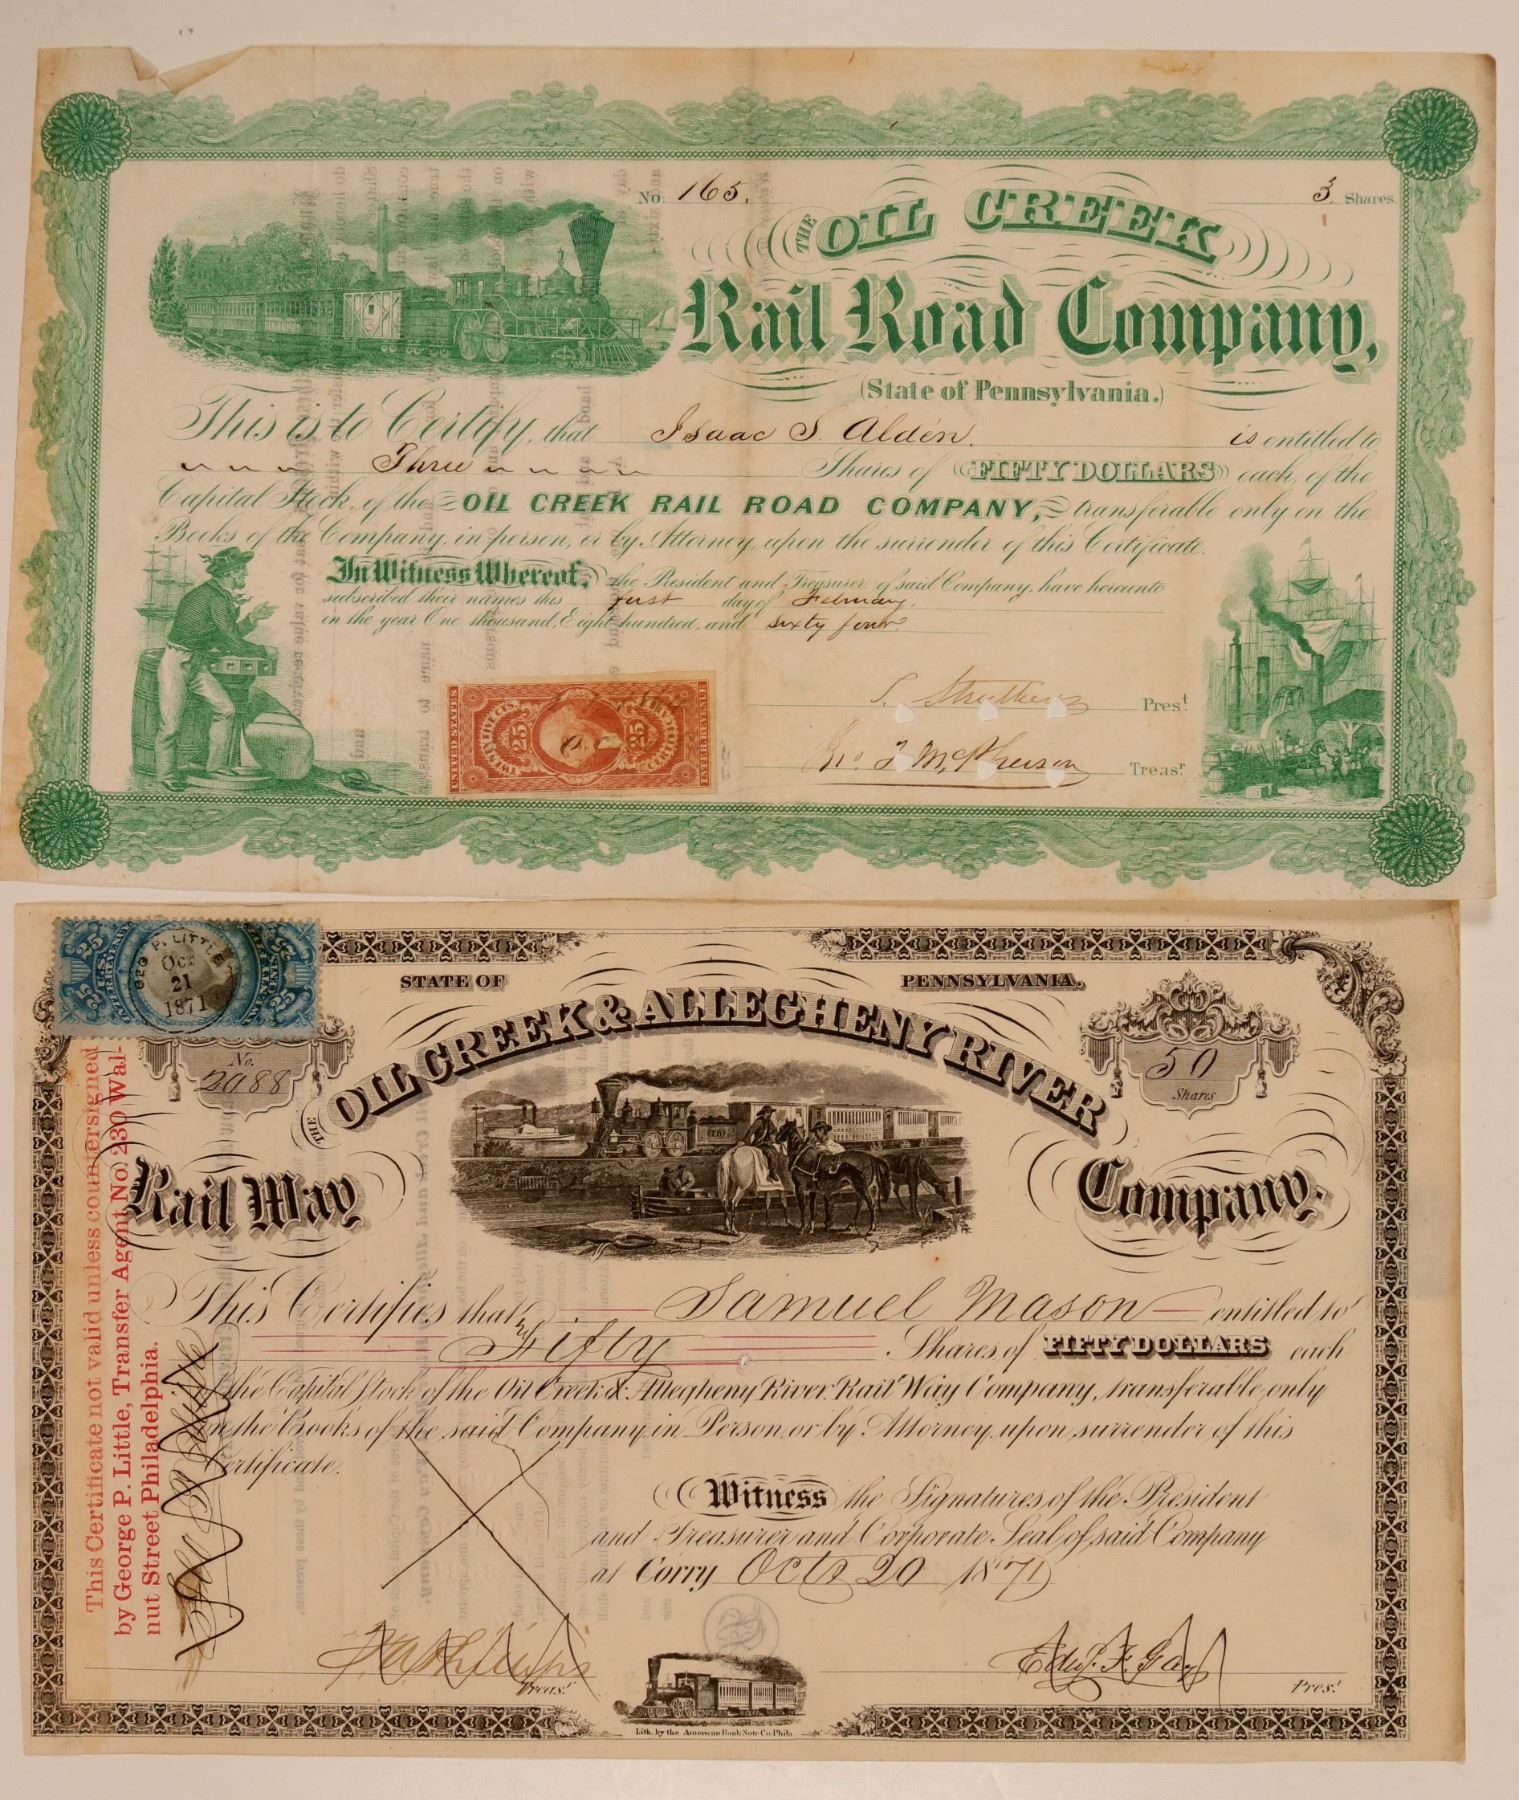 No. 165.
3 Shares.
THE OIL CREEK
Rail Road Company,
(State of Pennsylvania.)
This is to Certify, that Isaac S. Alden. is entitled to
Three Shares of FIFTY DOLLARS each, of the
Capital Stock, of the OIL CREEK RAIL ROAD COMPANY, transferable only on the
Books of the Company, in person, or by Attorney, upon the surrender of this Certificate.
In Witness Whereof, the President and Treasurer of said Company, have hereunto
subscribed their names this first day of February,
in the year One thousand, Eight hundred, and sixty four.
UNITED STATES
TWENTY FIVE CTS.
25
25
INTER. REVENUE
S. Struthers Prest.
Jno. F. McPherson Treasr.
25
U.S.
25
25
25
GEO. P. LITTLE
Oct
21
1871
STATE OF PENNSYLVANIA.
THE OIL CREEK & ALLEGHENY RIVER
Rail Way Company.
No.
2988
50
Shares
This Certifies that Samuel Mason entitled to
Fifty Shares of FIFTY DOLLARS each
of the Capital Stock of the Oil Creek & Allegheny River Rail Way Company, transferable only
on the Books of the said Company, in Person or by Attorney, upon surrender of this
Certificate.
Witness the Signatures of the President
and Treasurer and Corporate Seal of said Company
at Corry Octr 20 1871
This Certificate not valid unless countersigned
by George P. Little, Transfer Agent No. 230 Wal-
nut Street Philadelphia.
Treasr.
Edw. F. Gay
Prest.
Lith. by the American Bank Note Co. Phila.